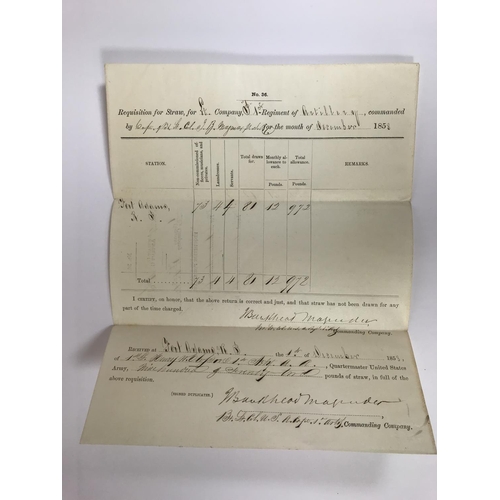 No. 36.
Requisition for Straw, for Company, Regiment of Artillery, commanded
by for the month of December 185
STATION.
Non-commissioned officers, musicians, and privates.
Laundresses.
Servants.
Total drawn for.
Monthly allowance to each.
Total allowance.
REMARKS.
Pounds. Pounds.
Fort Adams, 73 4 4 81 12 972
R. I.
Total 73 4 4 81 12 972
I CERTIFY, on honor, that the above return is correct and just, and that straw has not been drawn for any
part of the time charged.
J Bankhead Magruder
Commanding Company.
RECEIVED at Fort Adams R. I. the of December 185
of Quartermaster United States
Army, Nine hundred & Seventy two pounds of straw, in full of the
above requisition.
[SIGNED DUPLICATES.]
J Bankhead Magruder
Commanding Company.